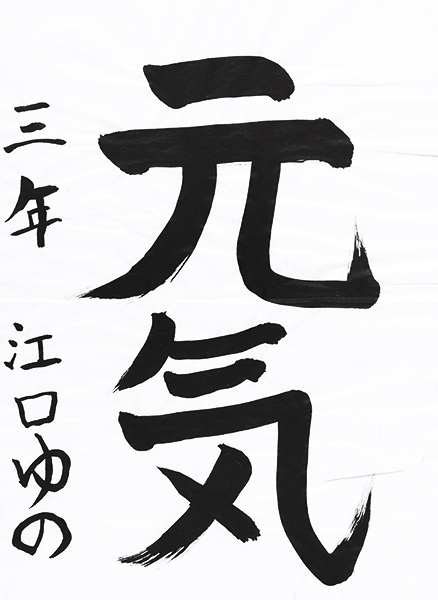 元気
三年 江口ゆの